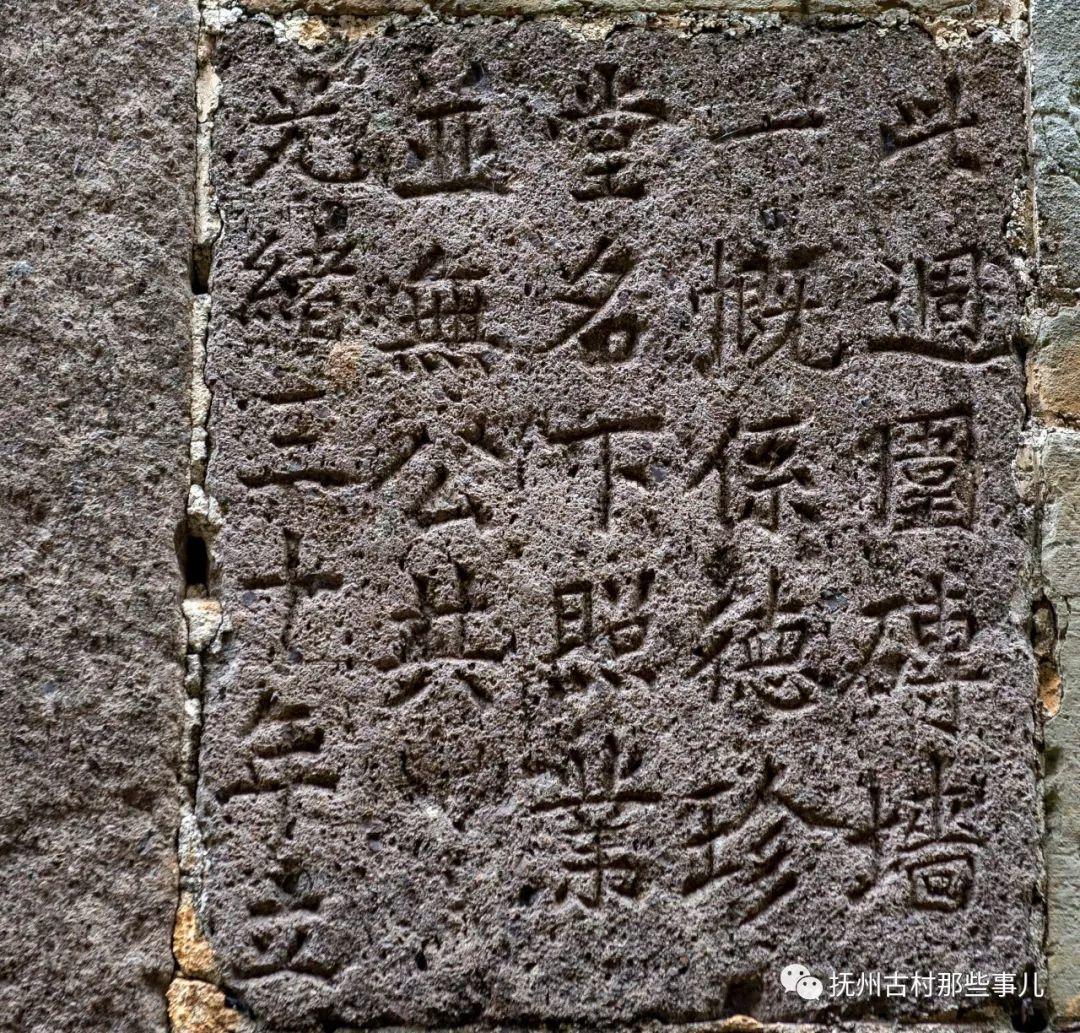 此週圍磚墻
一概係德珍
堂名下照業
並無公共
光緒三十年立
抚州古村那些事儿